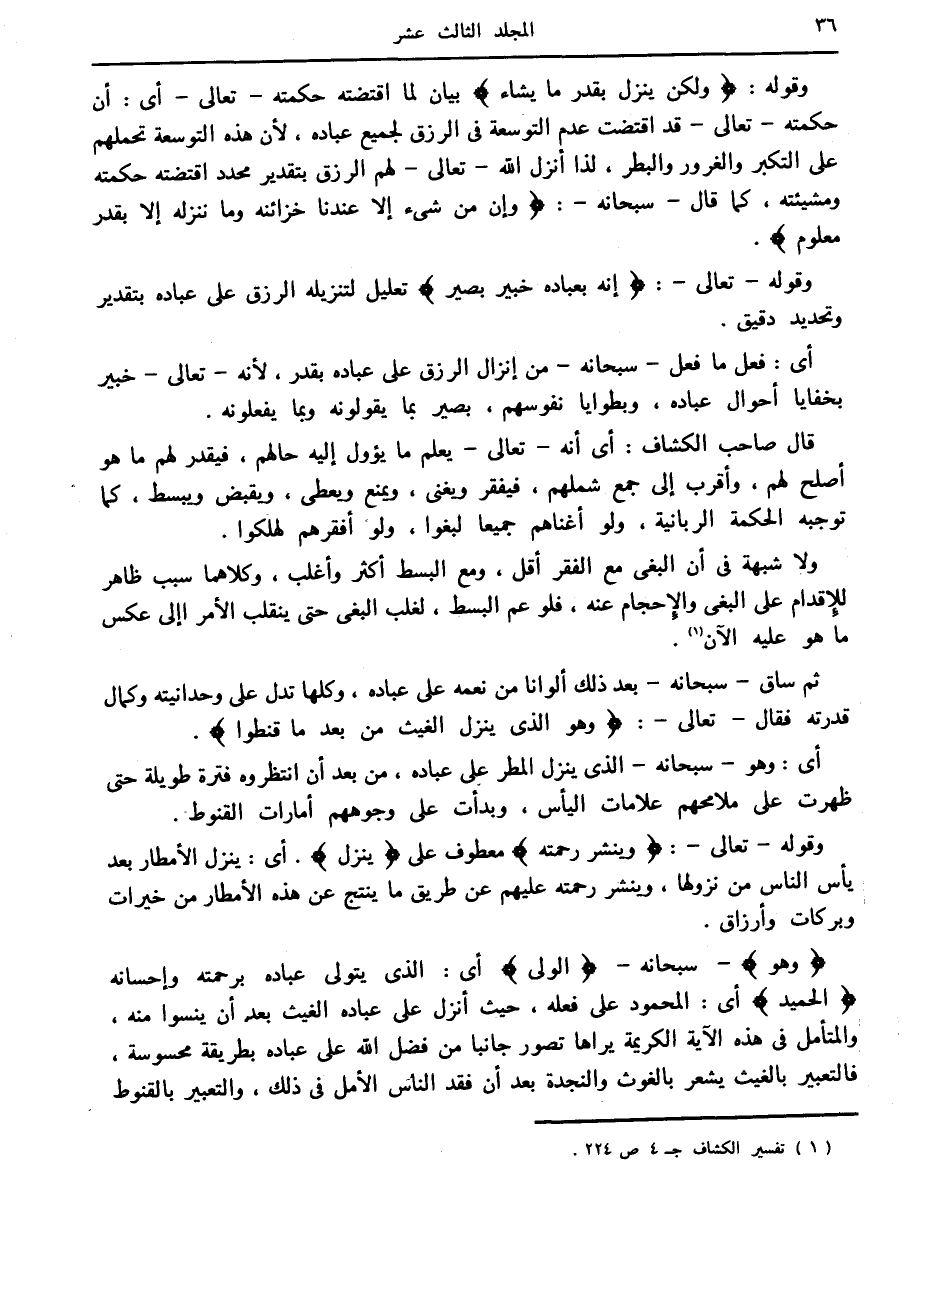 ٣٦
المجلد الثالث عشر
وقوله : ﴿ ولكن ينزل بقدر ما يشاء ﴾ بيان لما اقتضته حكمته – تعالى – أى : أن
حكمته – تعالى – قد اقتضت عدم التوسعة فى الرزق لجميع عباده ، لأن هذه التوسعة تحملهم
على التكبر والغرور والبطر ، لذا أنزل الله – تعالى – لهم الرزق بتقدير محدد اقتضته حكمته
ومشيئته ، كما قال – سبحانه – : ﴿ وإن من شىء إلا عندنا خزائنه وما ننزله إلا بقدر
معلوم ﴾ .
وقوله – تعالى – : ﴿ إنه بعباده خبير بصير ﴾ تعليل لتنزيله الرزق على عباده بتقدير
وتحديد دقيق .
أى : فعل ما فعل – سبحانه – من إنزال الرزق على عباده بقدر ، لأنه – تعالى – خبير
بخفايا أحوال عباده ، وبطوايا نفوسهم ، بصير بما يقولونه وبما يفعلونه .
قال صاحب الكشاف : أى أنه – تعالى – يعلم ما يؤول إليه حالهم ، فيقدر لهم ما هو
أصلح لهم ، وأقرب إلى جمع شملهم ، فيفقر ويغنى ، ويمنع ويعطى ، ويقبض ويبسط ، كما
توجبه الحكمة الربانية ، ولو أغناهم جميعا لبغوا ، ولو أفقرهم لهلكوا .
ولا شبهة فى أن البغى مع الفقر أقل ، ومع البسط أكثر وأغلب ، وكلاهما سبب ظاهر
للإقدام على البغى والإحجام عنه ، فلو عم البسط ، لغلب البغى حتى ينقلب الأمر اإلى عكس
ما هو عليه الآن(١) .
ثم ساق – سبحانه – بعد ذلك ألوانا من نعمه على عباده ، وكلها تدل على وحدانيته وكمال
قدرته فقال – تعالى – : ﴿ وهو الذى ينزل الغيث من بعد ما قنطوا ﴾ .
أى : وهو – سبحانه – الذى ينزل المطر على عباده ، من بعد أن انتظروه فترة طويلة حتى
ظهرت على ملامحهم علامات اليأس ، وبدأت على وجوههم أمارات القنوط .
وقوله – تعالى – : ﴿ وينشر رحمته ﴾ معطوف على ﴿ ينزل ﴾ . أى : ينزل الأمطار بعد
يأس الناس من نزولها ، وينشر رحمته عليهم عن طريق ما ينتج عن هذه الأمطار من خيرات
وبركات وأرزاق .
﴿ وهو ﴾ – سبحانه – ﴿ الولى ﴾ أى : الذى يتولى عباده برحمته وإحسانه
﴿ الحميد ﴾ أى : المحمود على فعله ، حيث أنزل على عباده الغيث بعد أن ينسوا منه ،
والمتأمل فى هذه الآية الكريمة يراها تصور جانبا من فضل الله على عباده بطريقة محسوسة ،
فالتعبير بالغيث يشعر بالغوث والنجدة بعد أن فقد الناس الأمل فى ذلك ، والتعبير بالقنوط
( ١ ) تفسير الكشاف جـ ٤ ص ٢٢٤ .